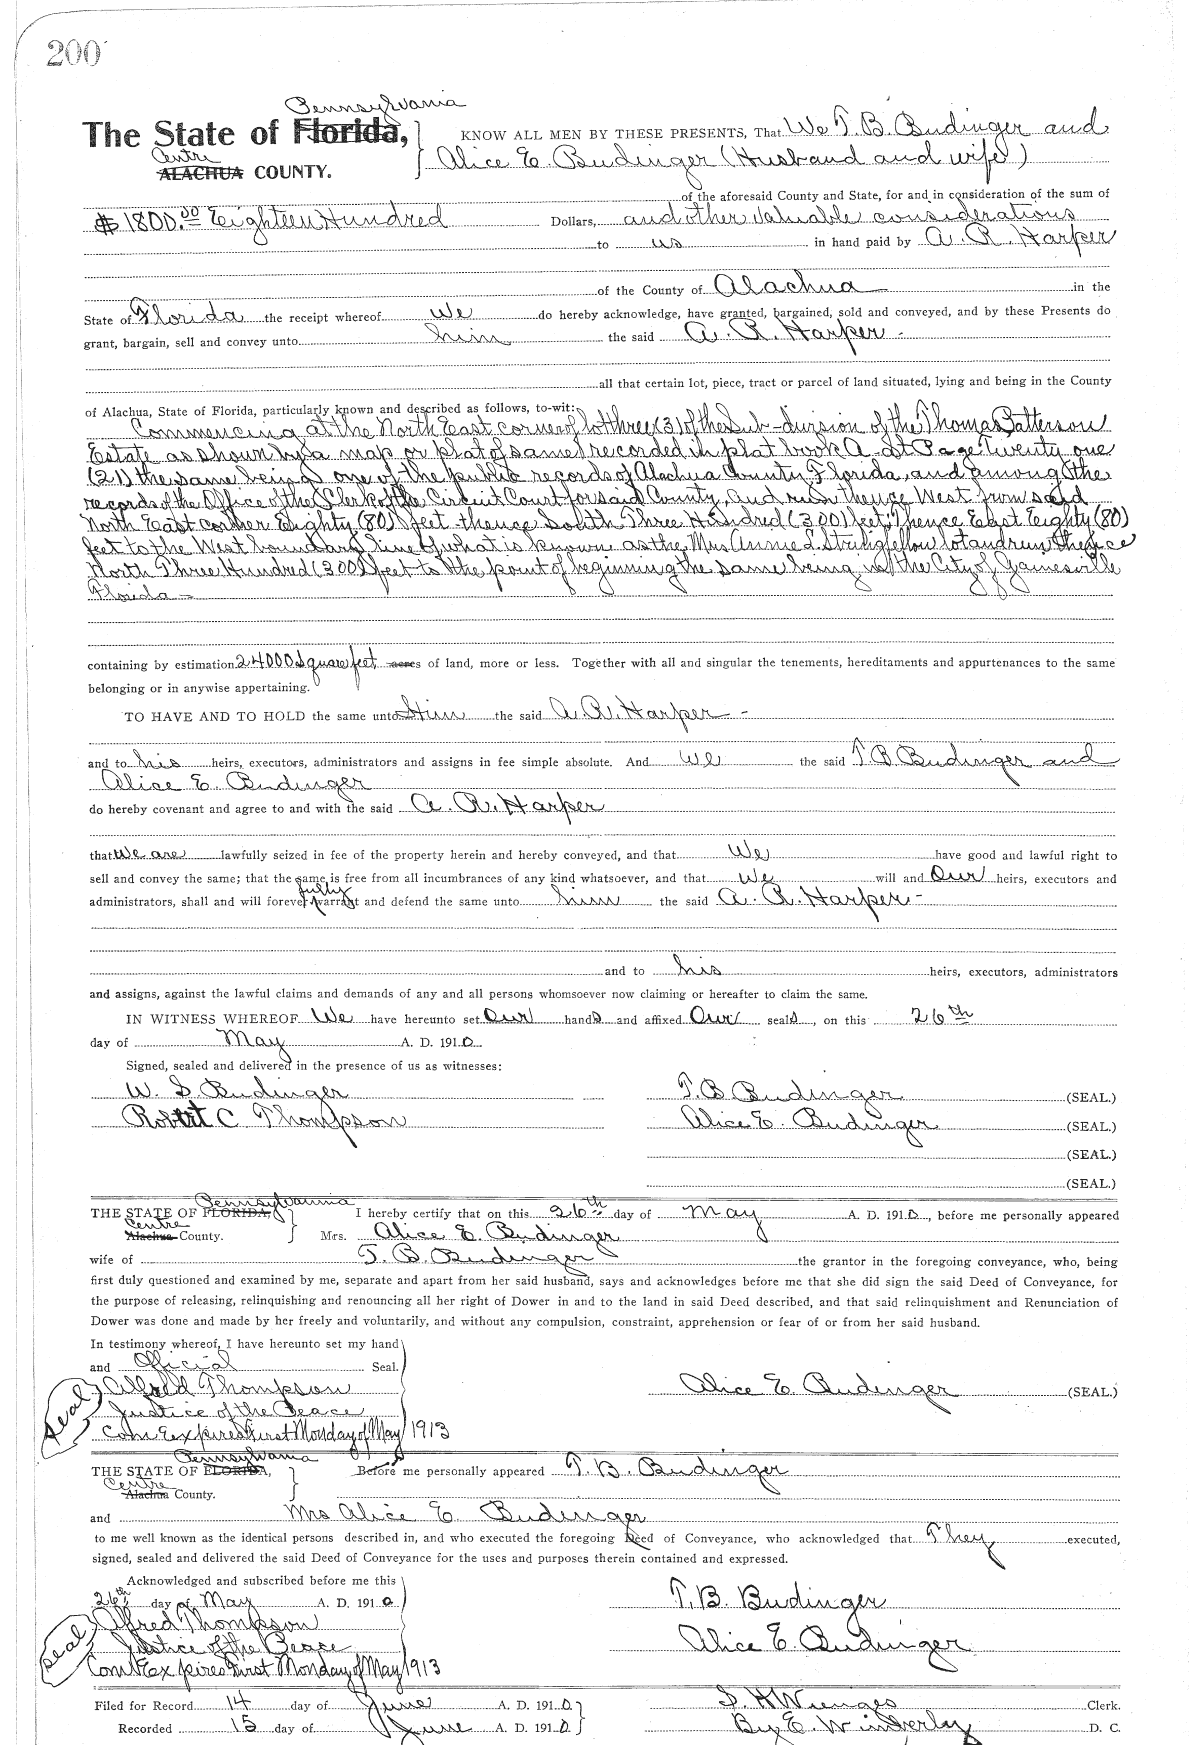 200
Pennsylvania
The State of Florida, KNOW ALL MEN BY THESE PRESENTS, That We T. B. Budinger and
Centre
ALACHUA COUNTY. Alice E. Budinger (Husband and wife)
of the aforesaid County and State, for and in consideration of the sum of
$1800.00 Eighteen Hundred Dollars, and other valuable considerations
to us in hand paid by A. R. Harper
of the County of Alachua in the
State of Florida the receipt whereof we do hereby acknowledge, have granted, bargained, sold and conveyed, and by these Presents do
grant, bargain, sell and convey unto him the said A. R. Harper -
all that certain lot, piece, tract or parcel of land situated, lying and being in the County
of Alachua, State of Florida, particularly known and described as follows, to-wit:
Commencing at the North East corner of lot three (3) of the Sub-division of the Thomas Patterson
Estate as shown by a map or plat of same recorded in plat book A- at Page Twenty one
(21) the same being one of the public records of Alachua County, Florida, and among the
records of the Office of the Clerk of the Circuit Court for said County, and run thence West from said
North East corner Eighty (80) feet thence South Three Hundred (300) feet, Thence East Eighty (80)
feet to the West boundary line of what is known as the Mrs Annie L. Stringfellow lot and run thence
North Three Hundred (300) feet to the point of beginning the same being in the City of Gainesville
Florida -
containing by estimation 24000 Square feet acres of land, more or less. Together with all and singular the tenements, hereditaments and appurtenances to the same
belonging or in anywise appertaining.
TO HAVE AND TO HOLD the same unto Him the said A. R. Harper -
and to his heirs, executors, administrators and assigns in fee simple absolute. And we the said T. B. Budinger and
Alice E. Budinger
do hereby covenant and agree to and with the said A. R. Harper
that We are lawfully seized in fee of the property herein and hereby conveyed, and that We have good and lawful right to
sell and convey the same; that the same is free from all incumbrances of any kind whatsoever, and that We will and Our heirs, executors and
fully
administrators, shall and will forever warrant and defend the same unto him the said A. R. Harper -
and to his heirs, executors, administrators
and assigns, against the lawful claims and demands of any and all persons whomsoever now claiming or hereafter to claim the same.
IN WITNESS WHEREOF We have hereunto set Our hands and affixed Our seals, on this 26th
day of May A. D. 1910.
Signed, sealed and delivered in the presence of us as witnesses:
W. S. Budinger T. B. Budinger (SEAL.)
Robert C. Thompson Alice E. Budinger (SEAL.)
(SEAL.)
(SEAL.)
Pennsylvania
THE STATE OF FLORIDA, I hereby certify that on this 26th day of May A. D. 1910, before me personally appeared
Centre
Alachua County. Mrs. Alice E. Budinger
wife of T. B. Budinger the grantor in the foregoing conveyance, who, being
first duly questioned and examined by me, separate and apart from her said husband, says and acknowledges before me that she did sign the said Deed of Conveyance, for
the purpose of releasing, relinquishing and renouncing all her right of Dower in and to the land in said Deed described, and that said relinquishment and Renunciation of
Dower was done and made by her freely and voluntarily, and without any compulsion, constraint, apprehension or fear of or from her said husband.
In testimony whereof, I have hereunto set my hand
and Official Seal.
Seal Alfred Thompson Alice E. Budinger (SEAL.)
Justice of the Peace
Com Expires First Monday of May 1913
Pennsylvania
THE STATE OF FLORIDA, Before me personally appeared T. B. Budinger
Centre
Alachua County.
and Mrs Alice E. Budinger
to me well known as the identical persons described in, and who executed the foregoing Deed of Conveyance, who acknowledged that They executed,
signed, sealed and delivered the said Deed of Conveyance for the uses and purposes therein contained and expressed.
Acknowledged and subscribed before me this
26th day of May A. D. 1910 T. B. Budinger
Seal Alfred Thompson
Justice of the Peace Alice E. Budinger
Com Expires First Monday of May 1913
Filed for Record 14 day of June A. D. 1910 S. H. Wienges Clerk.
Recorded 15 day of June A. D. 1910 By E. Wimberly D. C.